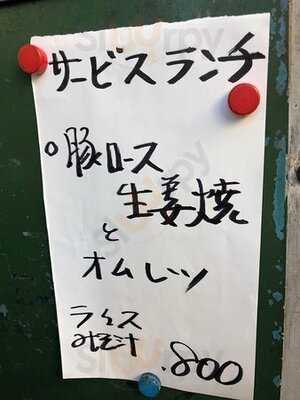 サービスランチ
○豚ロース
生姜焼
と
オムレツ
ライス
みそ汁
.800